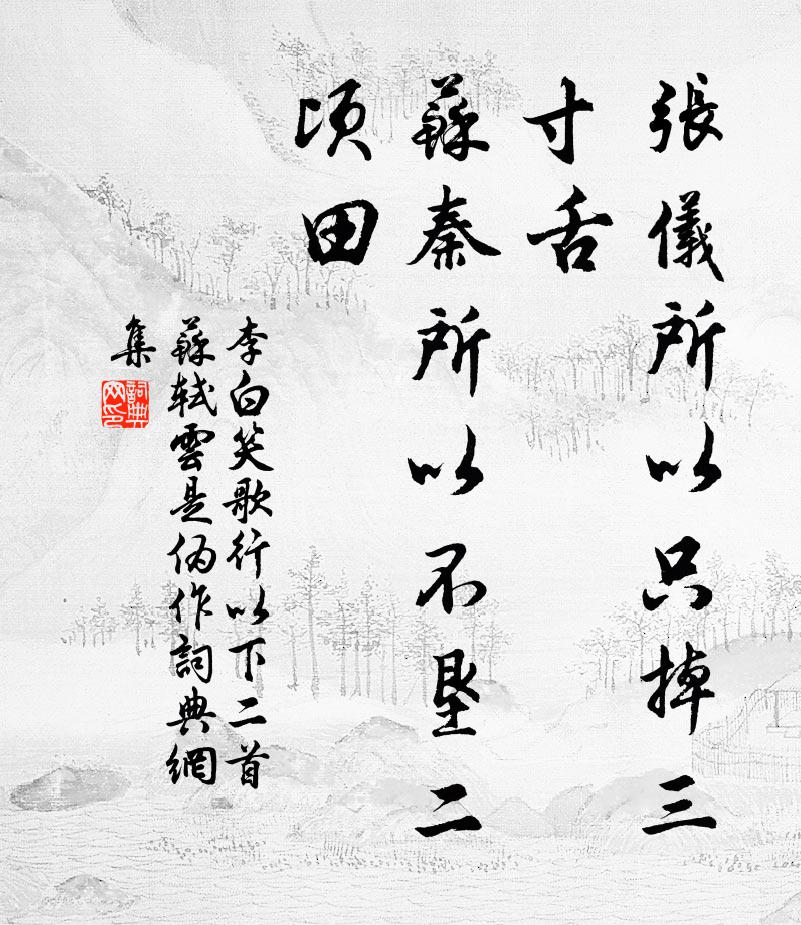 張儀所以只掉三
寸舌
蘇秦所以不墾二
頃田
李白笑歌行以下二首
蘇軾雲是偽作詞典網
集
詞典網印